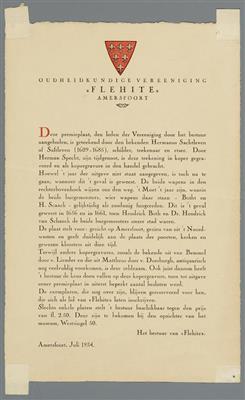 OUDHEIDKUNDIGE VEREENIGING
»FLEHITE«
AMERSFOORT
Deze premieplaat, den leden der Vereeniging door het bestuur
aangeboden, is geteekend door den bekenden Hermanus Sachtleven
of Saftleven (1609-1685), schilder, teekenaar en etser. Door
Herman Specht, zijn tijdgenoot, is deze teekening in koper gegra-
veerd en als kopergravure in den handel gebracht.
Hoewel 't jaar der uitgave niet staat aangegeven, is toch na te
gaan, wanneer dit 't geval is geweest. De beide wapens in den
rechterbovenhoek wijzen ons den weg. 't Moet 't jaar zijn, waarin
de beide burgemeesters, wier wapens daar staan - Both en
H. Schaick - gelijktijdig als zoodanig fungeerden. Dit is 't geval
geweest in 1656 en in 1661, toen Hendrick Both en Dr. Hendrick
van Schaick de beide burgemeesters onzer stad waren.
De plaat stelt voor: gezicht op Amersfoort, gezien van uit 't Noord-
westen en geeft duidelijk aan de plaats der poorten, kerken en
gewezen kloosters uit dien tijd.
Terwijl andere kopergravures, zooals de bekende uit van Bemmel
door v. Liender en die uit Mattheus door v. Doesburgh, antiquarisch
nog veelvuldig voorkomen, is deze zeldzaam. Ook juist daarom heeft
't bestuur de keus doen vallen op deze kopergravure, toen tot uitgave
eener premieplaat in uiterst beperkt aantal besloten werd.
De exemplaren, die nog over zijn, blijven gereserveerd voor hen,
die zich als lid van »Flehite« laten inschrijven.
Slechts enkele platen stelt 't bestuur beschikbaar tegen den prijs
van fl. 2.50. Deze zijn te bekomen bij den opzichter van het
museum, Westsingel 50.
Het bestuur van »Flehite«.
Amersfoort, Juli 1934.